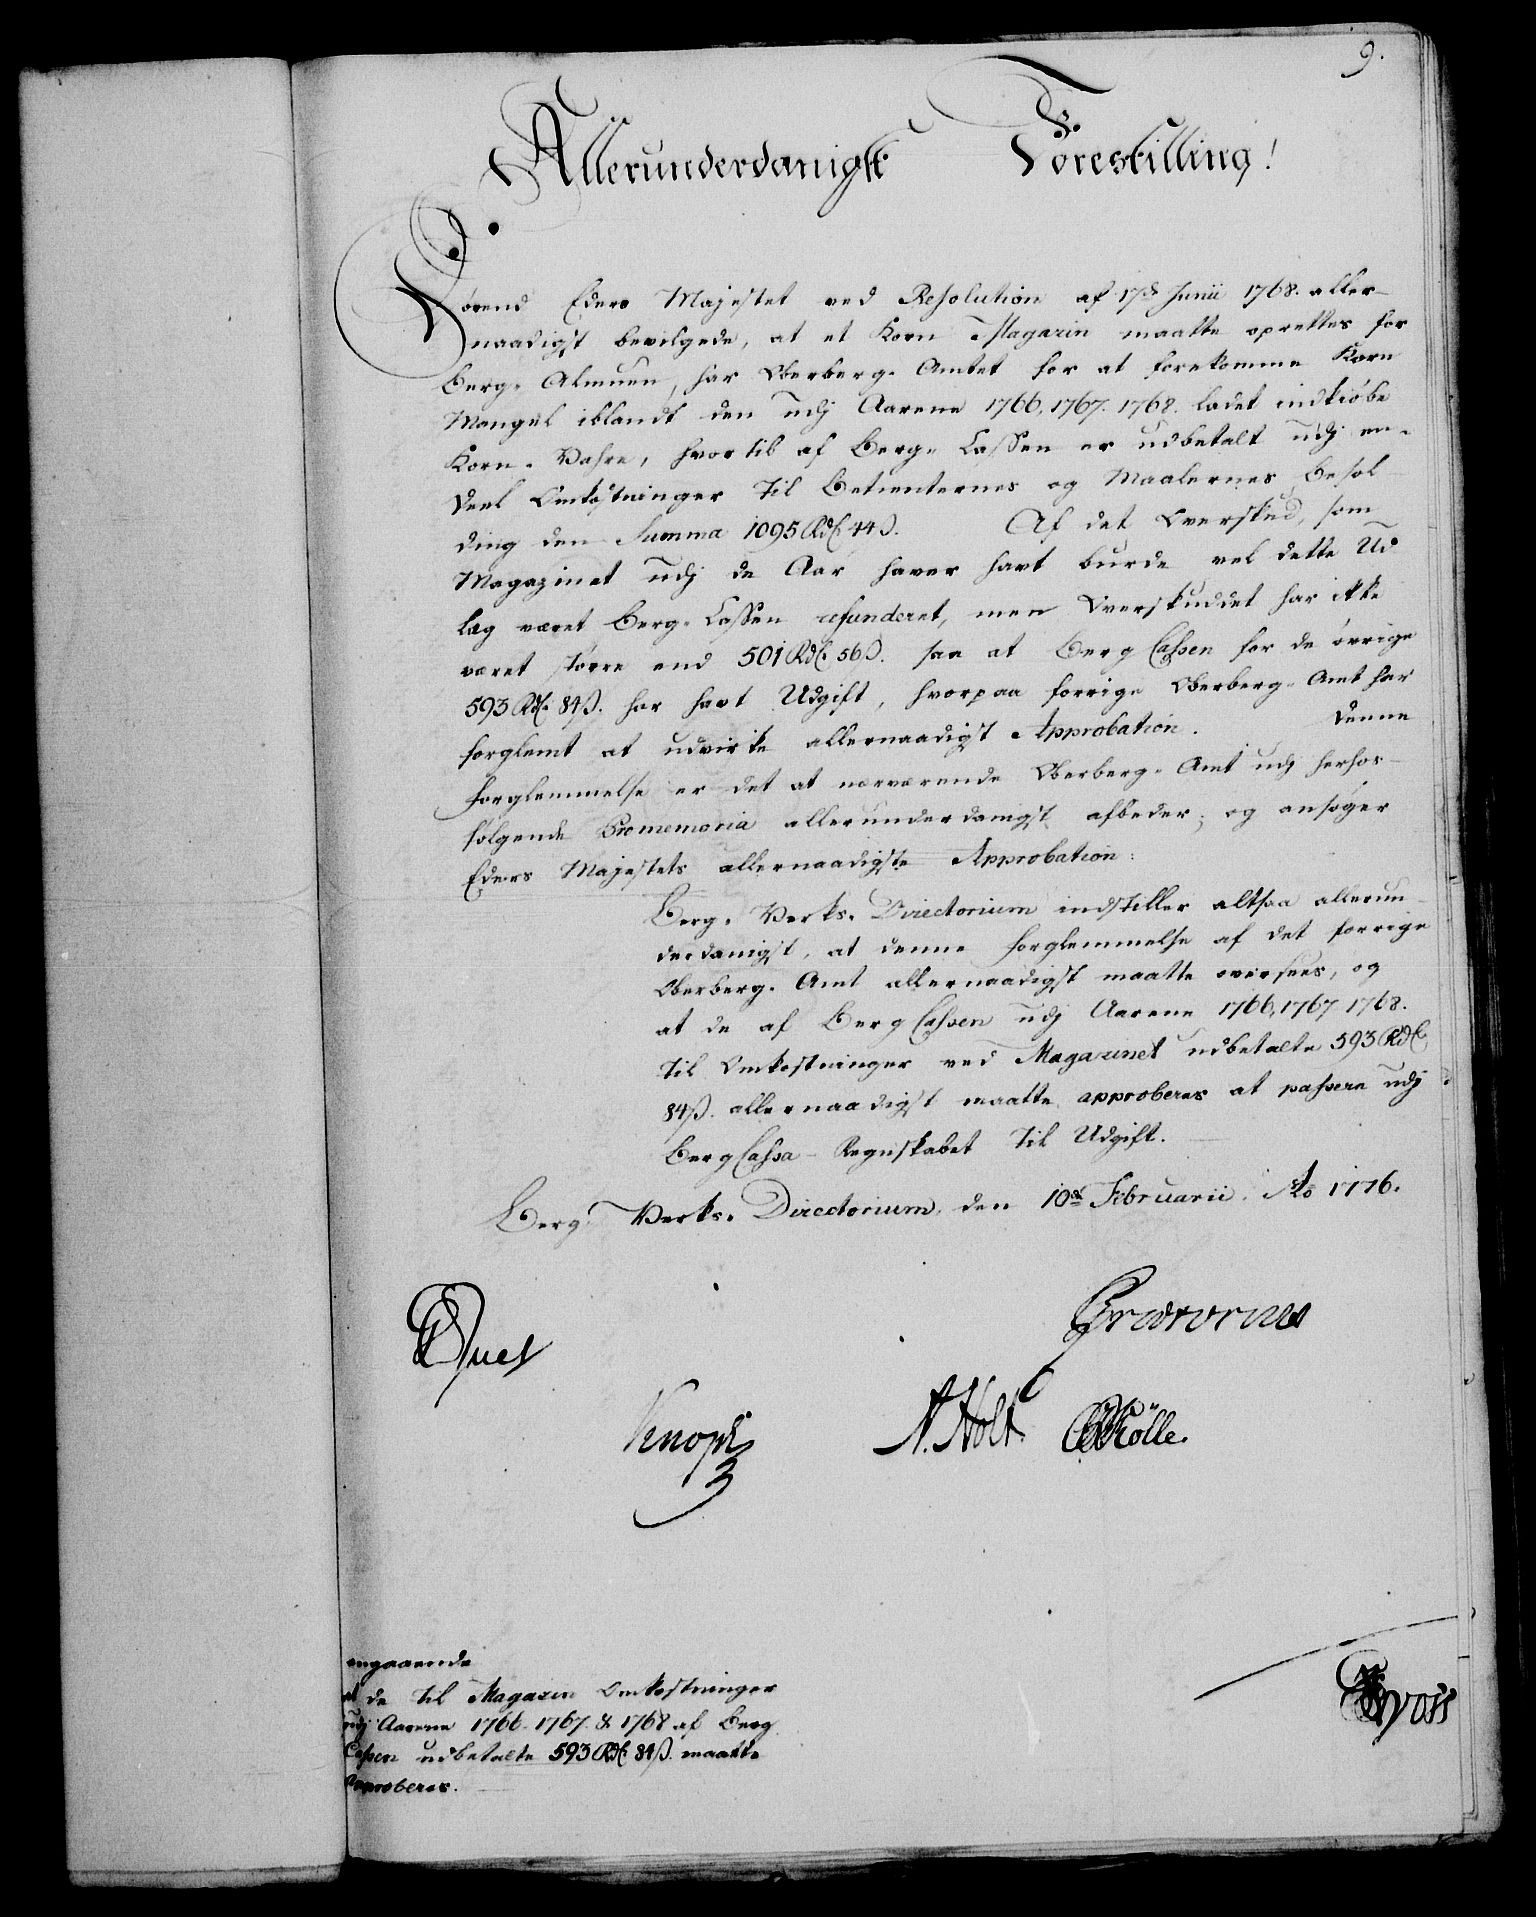 9.
Allerunderdanigst Forestilling!
Førend Eders Majestet ved Resolution af 17de Junii 1768. aller-
naadigst bevilgede, at et Korn Magazin maatte oprettes for
Berg- Almuen, har Oberberg- Amtet for at forekomme Korn
Mangel iblandt den udj Aarene 1766, 1767. 1768. ladet indkiøbe
Korn- Vahre, hvortil af Berg- Cassen er udbetalt udj en-
deel Omkostninger til Betienternes og Maalernes Besol
ding den Summa 1095 Rdl. 44 ß. Af det Overskud, som
Magazinet udj de Aar haver havt burde vel dette Ud
læg været Berg- Cassen refunderet, men Overskuddet har ikke
været større end 501 Rdl. 56 ß. saa at Berg Cassen for de øvrige
593 Rdl. 84 ß. har havt Udgift, hvorpaa forrige Oberberg- Amt har
forglemt at udvirke allernaadigst Approbation. Denne
forglemmelse er det at nærværende Oberberg- Amt udj herhos-
følgende Promemoria allerunderdanigst afbeder, og ansøger
Eders Majestets allernaadigste Approbation:
Berg- Verks- Directorium indstiller altsaa allerun-
derdanigst, at denne forglemmelse af det forrige
Oberberg- Amt allernaadigst maatte oversees, og
at de af Berg Cassen udj Aarene 1766, 1767 1768.
til Omkostninger ved Magazinet udbetalte 593 Rdl.
84 ß. allernaadigst maatte approberes at passere udj
Berg Cassa- Regnskabet til Udgift.
Berg- Verks- Directorium, den 10de Februarii. Ao 1776.
Knoph
A. Holt
angaaende
at de til Magazin Omkostninger
udj Aarene 1766. 1767. & 1768 af Berg
Cassen udbetalte 593 Rdl. 84 ß. maatte
approberes.